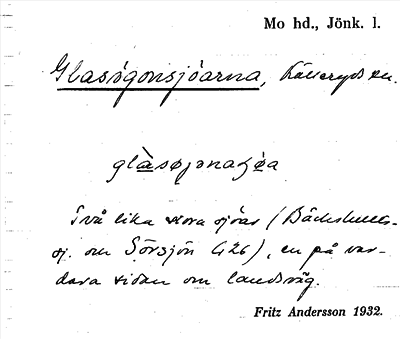 Mo hd., Jönk. l.
Glasögonsjöarna, Kävsryds sn.
glàsøjonaʃø̀a
Två lika stora sjöar (Bäckshults-
sj. och Sörsjön 426), en på var-
dera sidan om landsväg.
Fritz Andersson 1932.